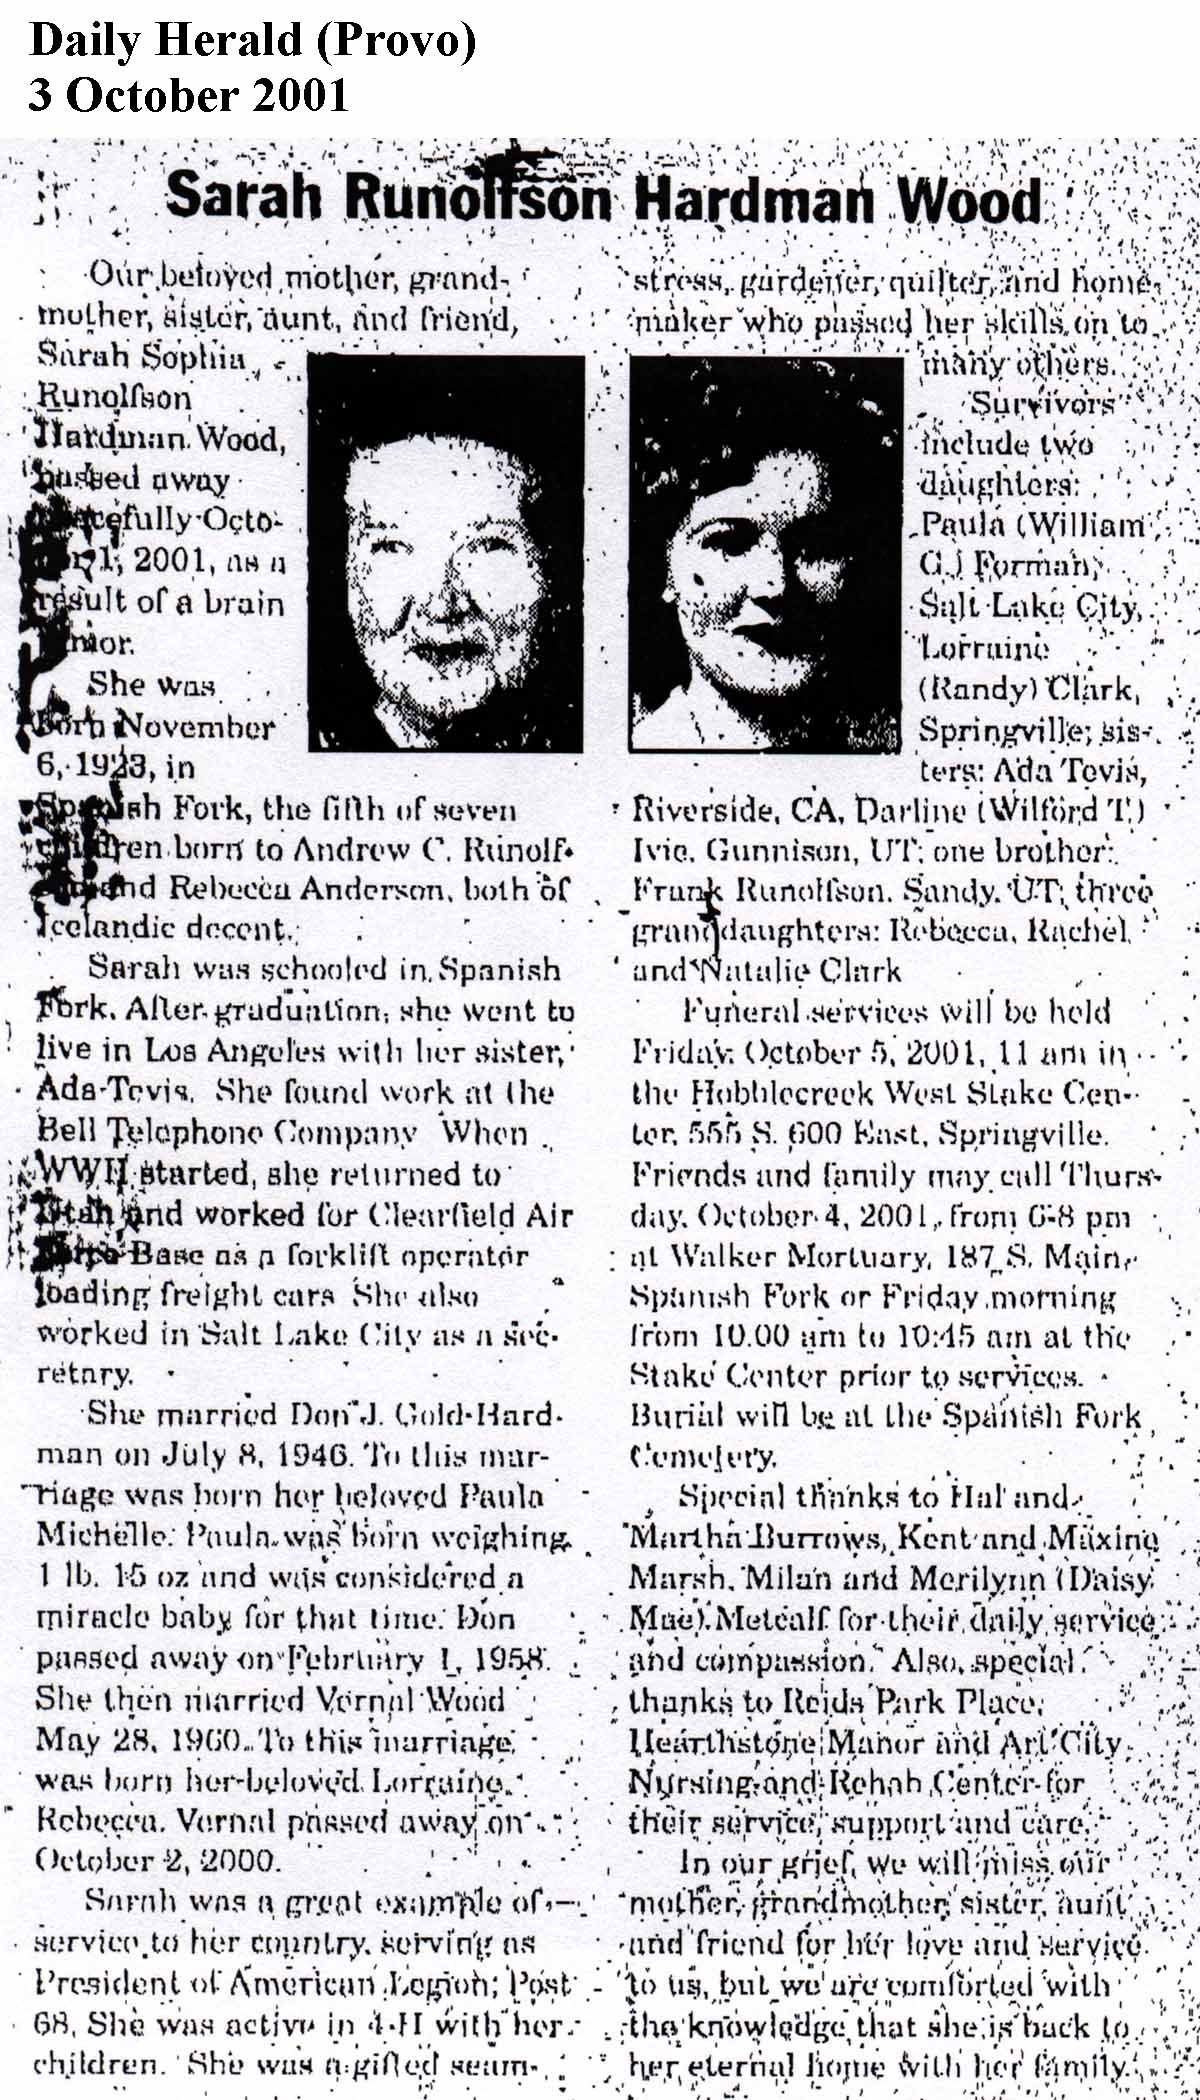 Daily Herald (Provo)
3 October 2001
Sarah Runolfson Hardman Wood
Our beloved mother, grand-
mother, sister, aunt, and friend,
Sarah Sophia
Runolfson
Hardman Wood,
passed away
peacefully Octo-
ber 1, 2001, as a
result of a brain
tumor.
She was
born November
6, 1923, in
Spanish Fork, the fifth of seven
children born to Andrew C. Runolf-
son and Rebecca Anderson, both of
Icelandic decent.
Sarah was schooled in Spanish
Fork. After graduation, she went to
live in Los Angeles with her sister,
Ada Tevis. She found work at the
Bell Telephone Company When
WWII started, she returned to
Utah and worked for Clearfield Air
Force Base as a forklift operator
loading freight cars She also
worked in Salt Lake City as a sec-
retary.
She married Don J. Gold Hard-
man on July 8, 1946. To this mar-
riage was born her beloved Paula
Michelle. Paula was born weighing
1 lb. 15 oz and was considered a
miracle baby for that time. Don
passed away on February 1, 1958.
She then married Vernal Wood
May 28, 1960. To this marriage
was born her beloved Lorraine
Rebecca. Vernal passed away on
October 2, 2000.
Sarah was a great example of
service to her country, serving as
President of American Legion, Post
68. She was active in 4-H with her
children. She was a gifted seam-
stress, gardener, quilter, and home-
maker who passed her skills on to
many others.
Survivors
include two
daughters:
Paula (William
G.) Forman,
Salt Lake City,
Lorraine
(Randy) Clark,
Springville; sis-
ters: Ada Tevis,
Riverside, CA, Darline (Wilford T.)
Ivie, Gunnison, UT; one brother:
Frank Runolfson, Sandy, UT; three
granddaughters: Rebecca, Rachel
and Natalie Clark
Funeral services will be held
Friday, October 5, 2001, 11 am in
the Hobblecreek West Stake Cen-
ter, 555 S. 600 East, Springville.
Friends and family may call Thurs-
day, October 4, 2001, from 6-8 pm
at Walker Mortuary, 187 S. Main,
Spanish Fork or Friday morning
from 10.00 am to 10:45 am at the
Stake Center prior to services.
Burial will be at the Spanish Fork
Cemetery.
Special thanks to Hal and
Martha Burrows, Kent and Maxine
Marsh, Milan and Merilynn (Daisy
Mae) Metcalf for their daily service
and compassion. Also, special
thanks to Reids Park Place,
Hearthstone Manor and Art City
Nursing and Rehab Center for
their service, support and care.
In our grief, we will miss our
mother, grandmother, sister, aunt
and friend for her love and service
to us, but we are comforted with
the knowledge that she is back to
her eternal home with her family.